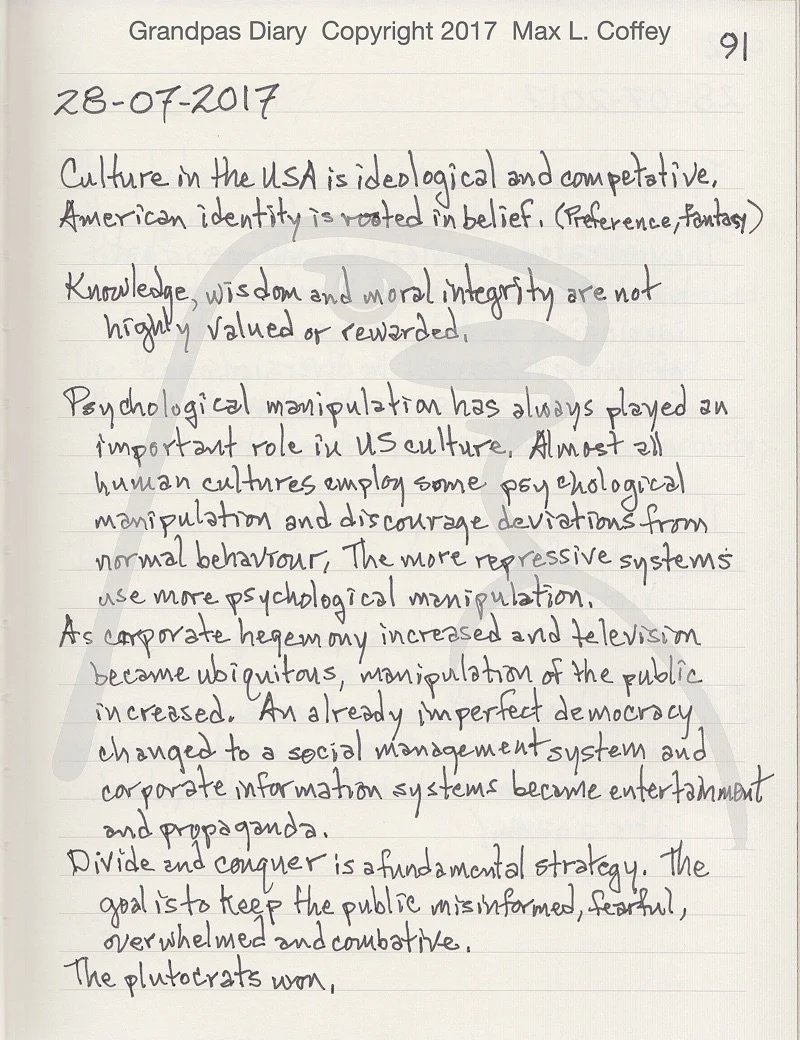 Grandpas Diary Copyright 2017 Max L. Coffey
91
28-07-2017
Culture in the USA is ideological and competative.
American identity is rooted in belief. (Preference, fantasy)
Knowledge, wisdom and moral integrity are not
highly valued or rewarded.
Psychological manipulation has always played an
important role in US culture. Almost all
human cultures employ some psychological
manipulation and discourage deviations from
normal behaviour. The more repressive systems
use more psychological manipulation.
As corporate hegemony increased and television
became ubiquitous, manipulation of the public
increased. An already imperfect democracy
changed to a social management system and
corporate information systems became entertainment
and propaganda.
Divide and conquer is a fundamental strategy. The
goal is to keep the public misinformed, fearful,
overwhelmed and combative.
The plutocrats won.